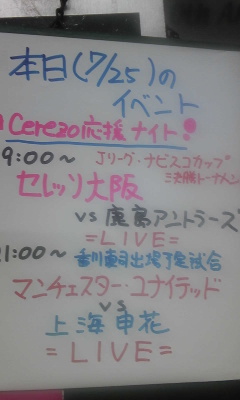 本日(7/25)の
イベント
Cerezo応援ナイト!
9:00～ Jリーグ・ナビスコカップ
決勝トーナメン
セレッソ大阪
vs 鹿島アントラーズ
=LIVE=
21:00～ 香川真司出場予定試合
マンチェスター・ユナイテッド
vs
上海申花
=LIVE=